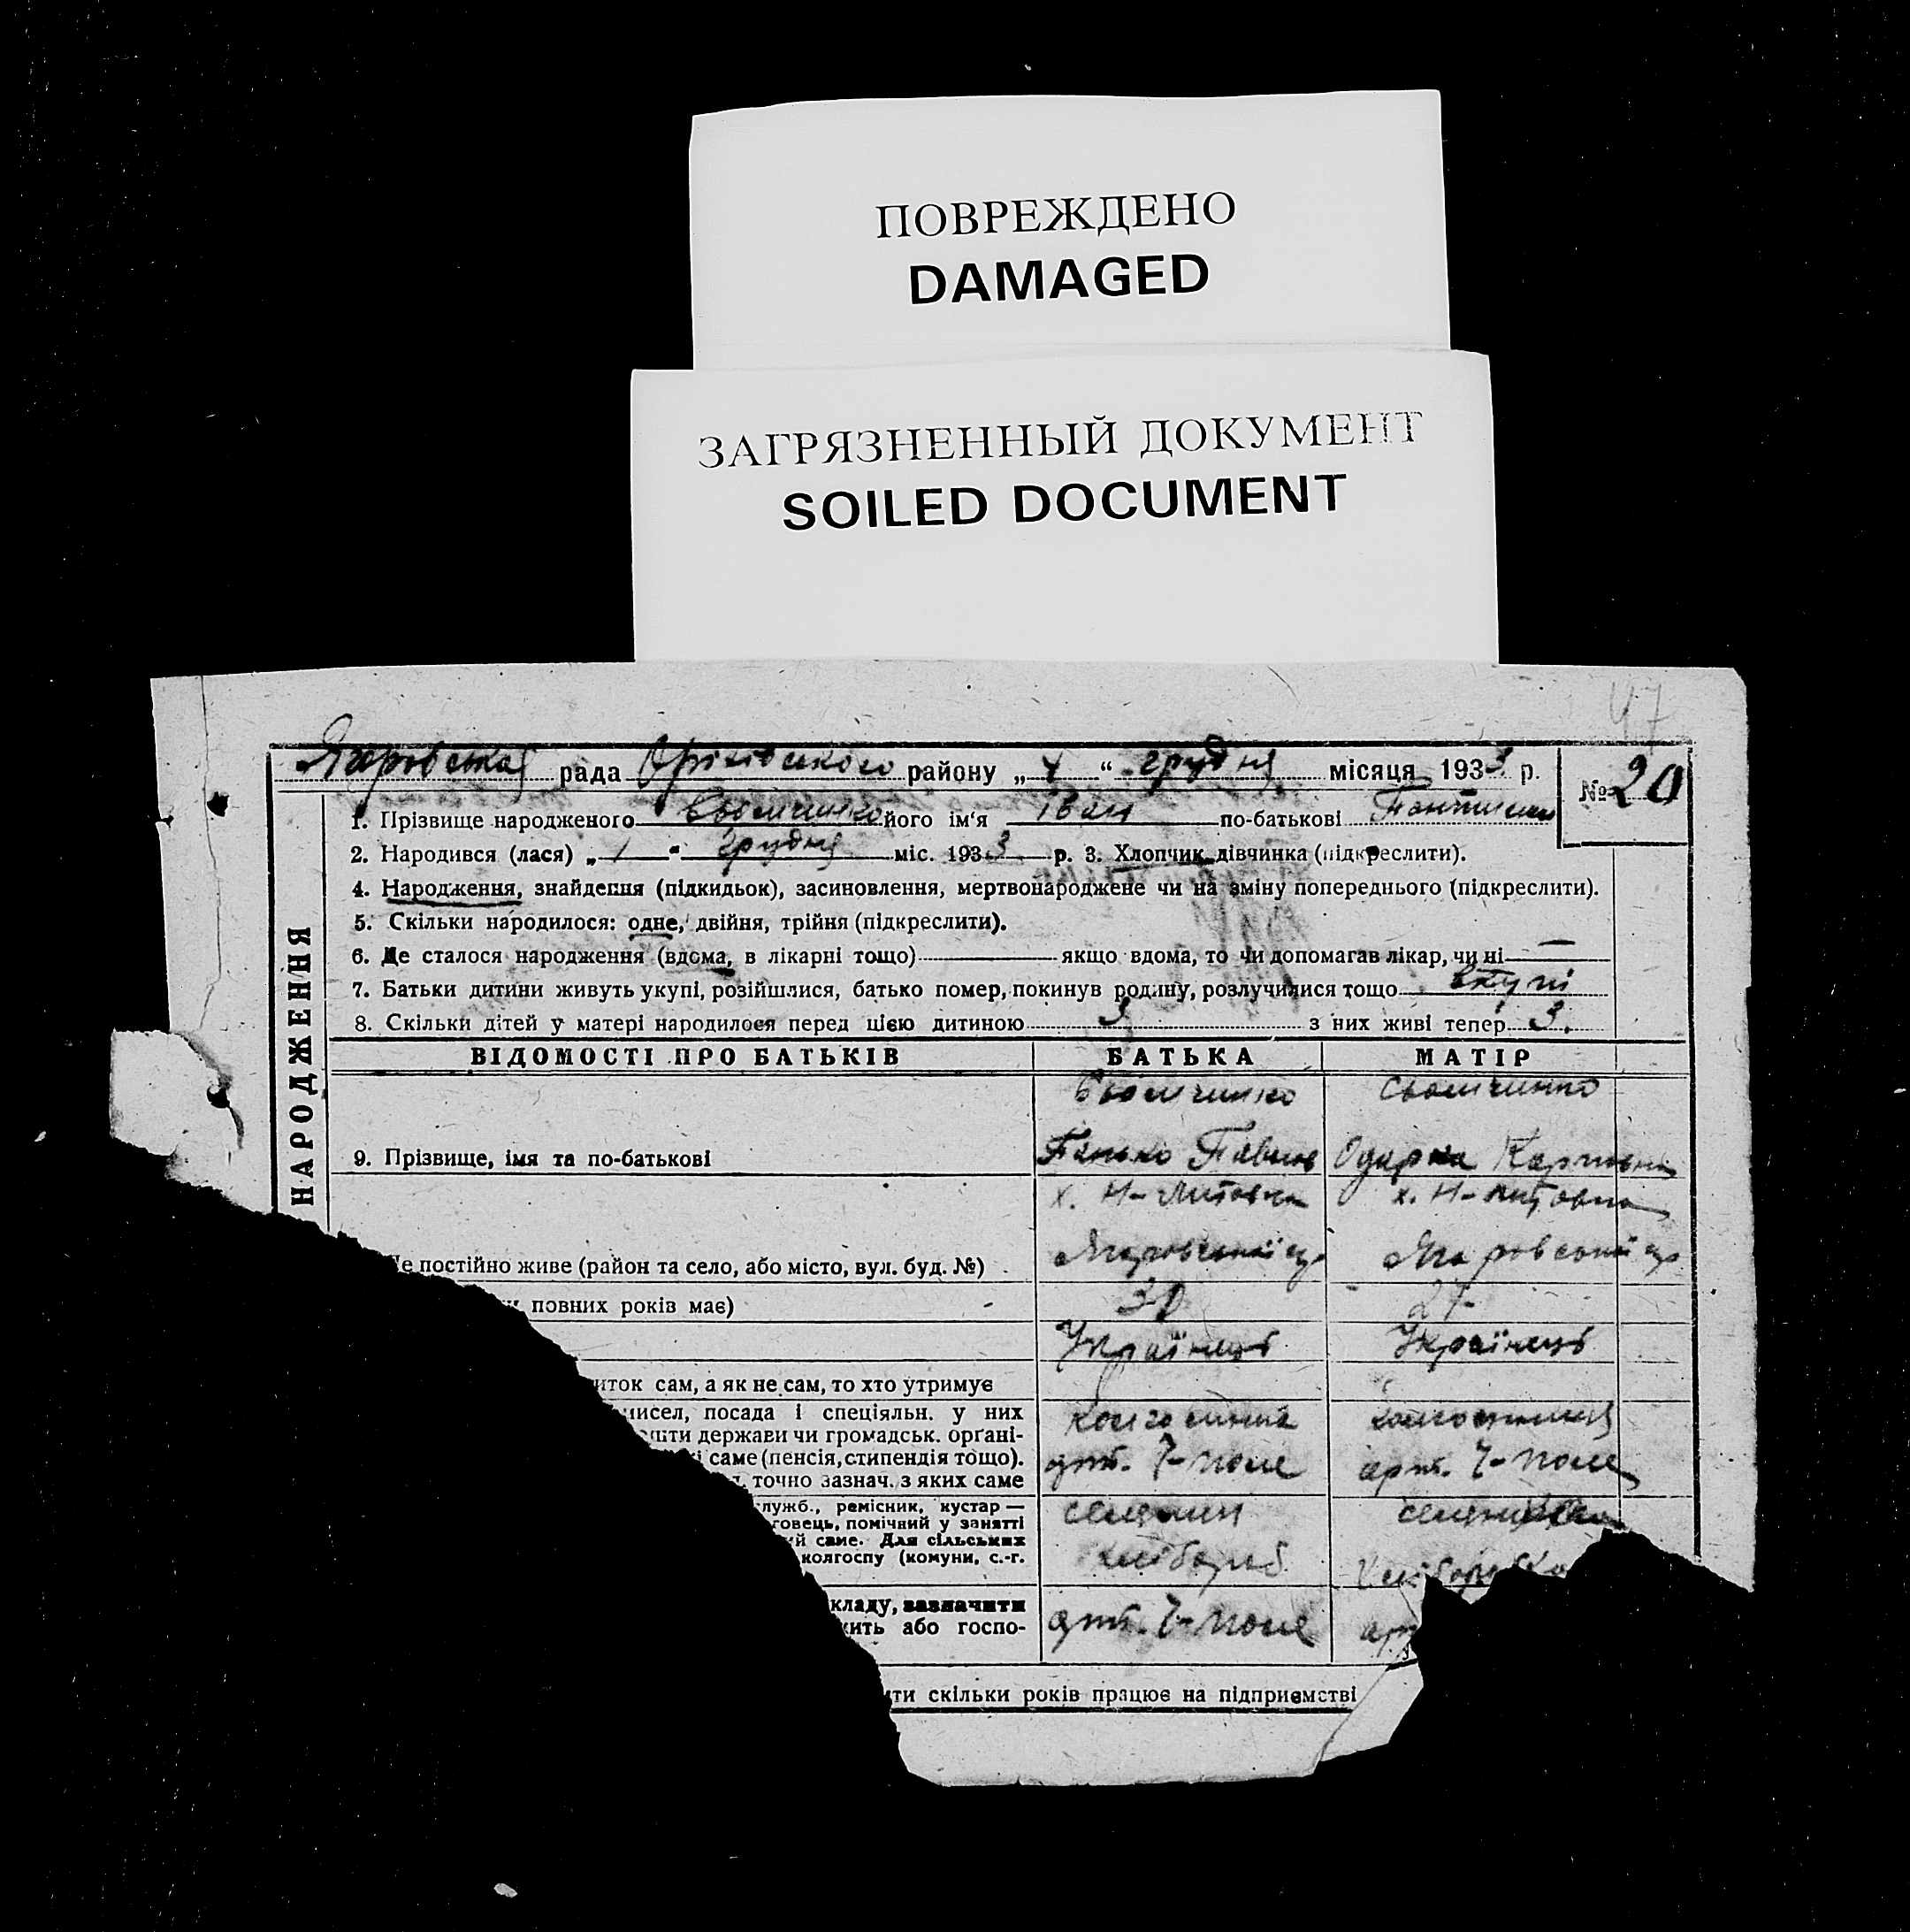 ПОВРЕЖДЕНО
DAMAGED
ЗАГРЯЗНЕННЫЙ ДОКУМЕНТ
SOILED DOCUMENT
47
рада Оріхівського району „ 4 “ грудня місяця 1933 р. № 20
НАРОДЖЕННЯ
1. Прізвище народженого його ім'я Іван по-батькові
2. Народився (лася) „ 1 “ грудня міс. 1933 р. 3. Хлопчик, дівчинка (підкреслити).
4. Народження, знайдення (підкидьок), засиновлення, мертвонароджене чи на зміну попереднього (підкреслити).
5. Скільки народилося: одне, двійня, трійня (підкреслити).
6. Де сталося народження (вдома, в лікарні тощо) якщо вдома, то чи допомагав лікар, чи ні —
7. Батьки дитини живуть укупі, розійшлися, батько помер, покинув родину, розлучилися тощо вкупі
8. Скільки дітей у матері народилося перед цією дитиною 3 з них живі тепер 3.
ВІДОМОСТІ ПРО БАТЬКІВ БАТЬКА МАТІР
9. Прізвище, імя та по-батькові Одарка Карповна
х. Н-Литовка х. Н-Литовка
Де постійно живе (район та село, або місто, вул. буд. №)
повних років має) 30
Українець Українець
иток сам, а як не сам, то хто утримує
мисел, посада і спеціяльн. у них
ошти держави чи громадськ. орґані-
і саме (пенсія, стипендія тощо).
точно зазнач. з яких саме
арт. 7-поле арт. 7-поле
служб., ремісник, кустар —
говець, помічний у занятті
ий саме. Для сільських
колгоспу (комуни, с.-г.
селянин селянка
хлібороб хліборобка
кладу, зазначити
жить або госпо-
арт. 7-поле ар
ти скільки років працює на підприємстві